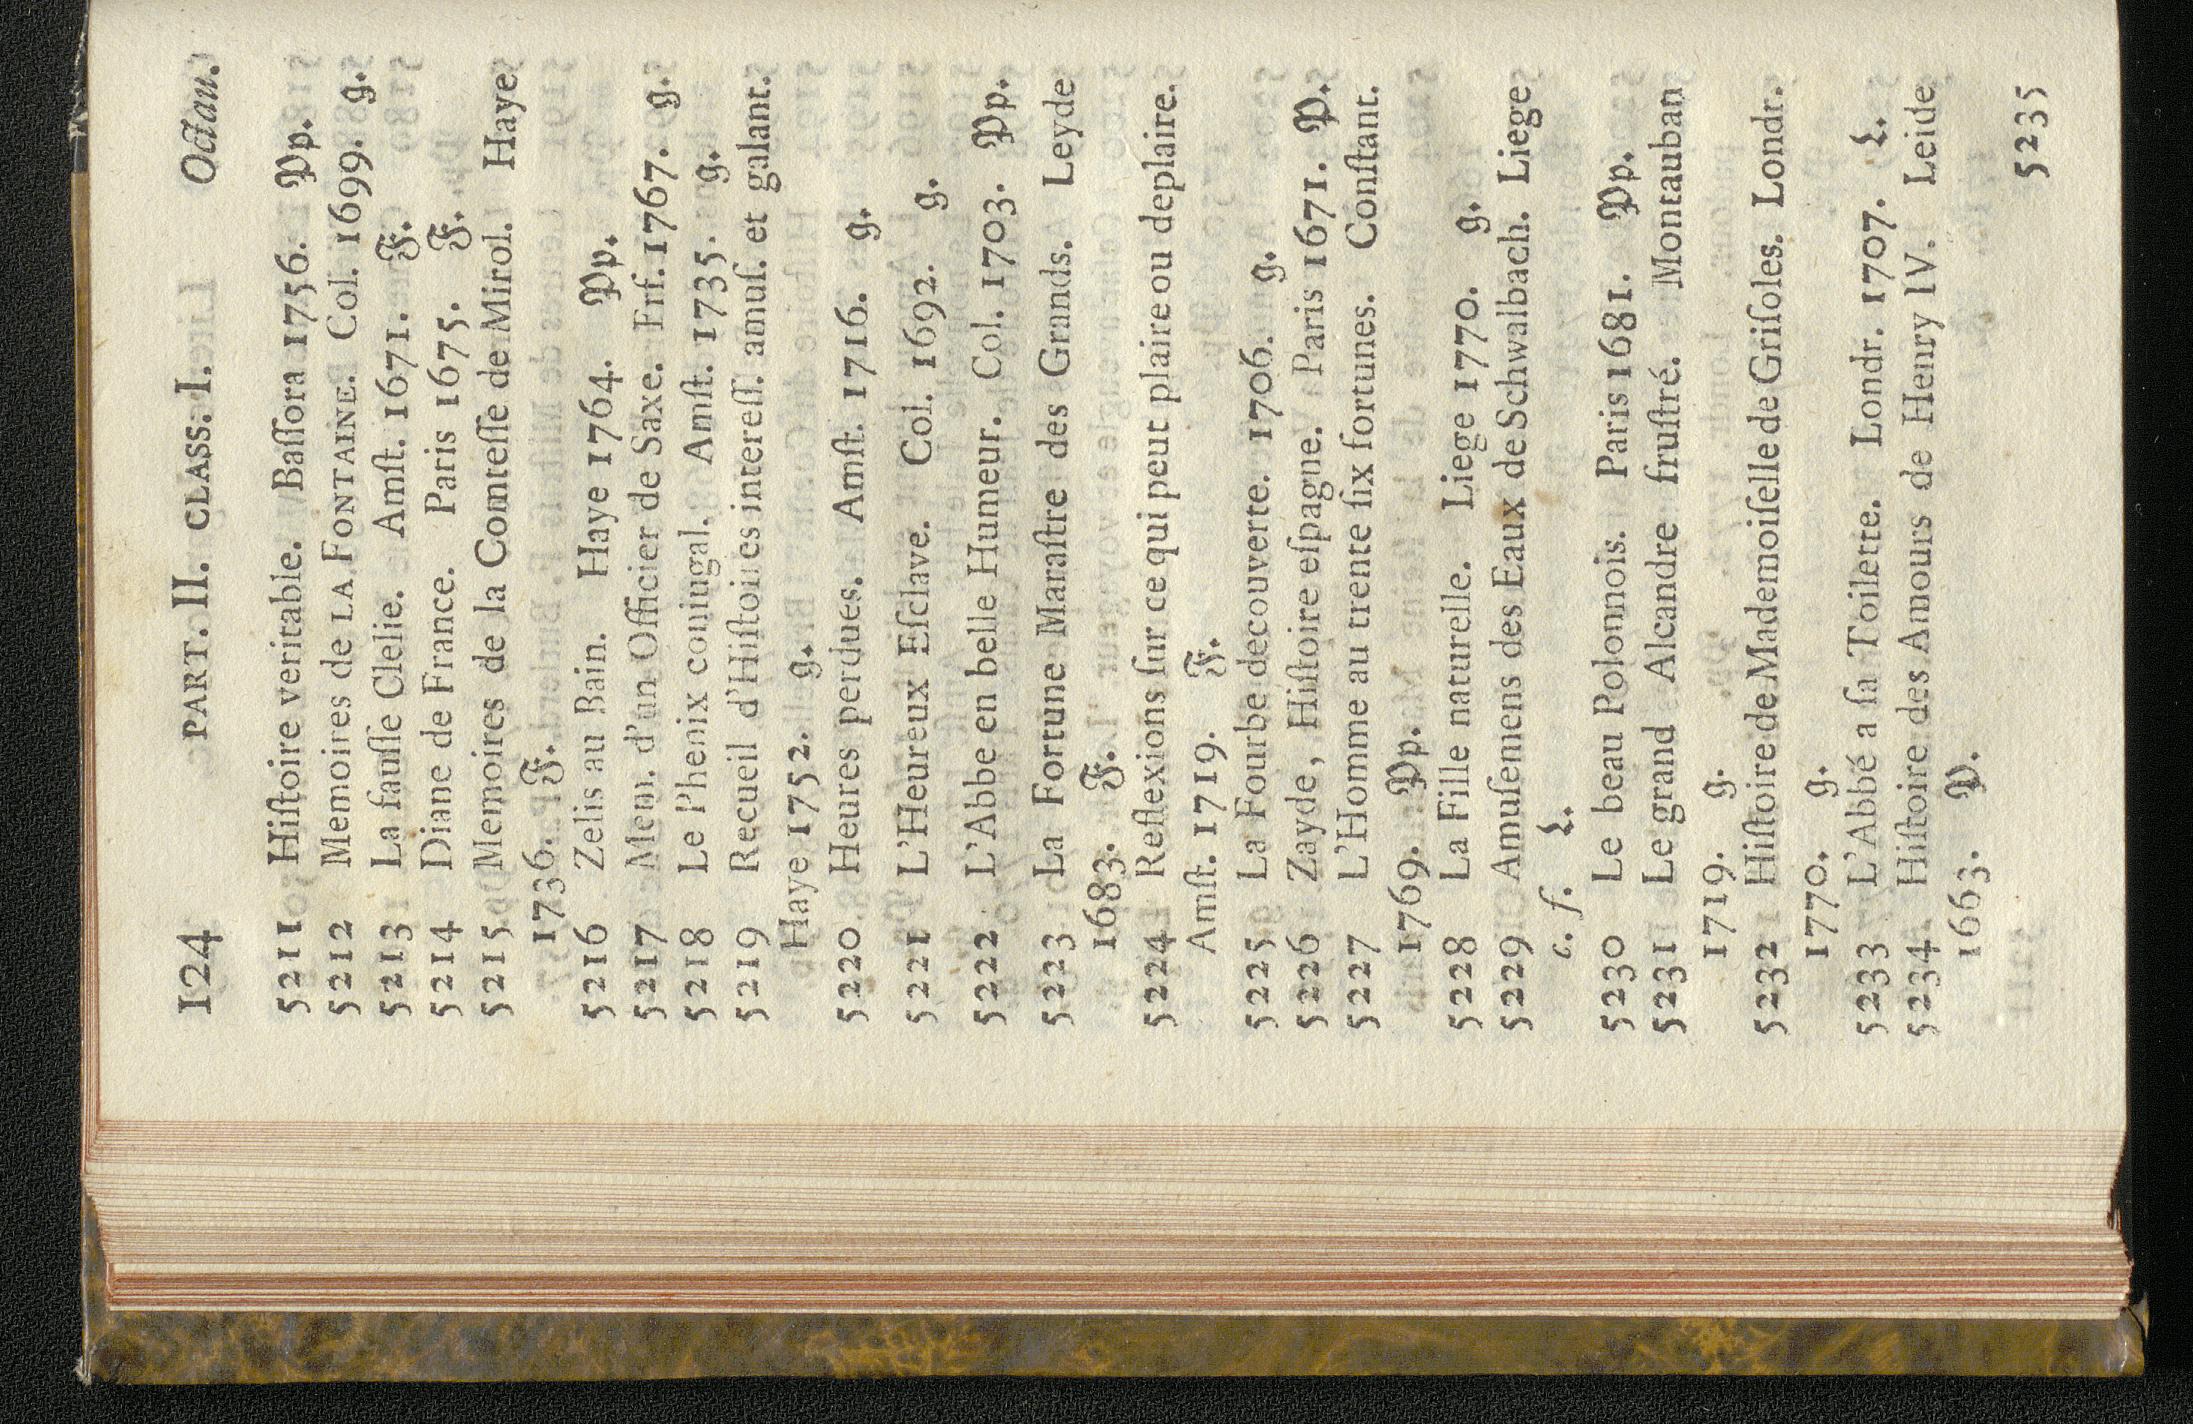 124 PART. II. CLASS. I. Octau.
5211 Hiſtoire veritable. Baſſora 1756. Pp.
5212 Memoires de LA FONTAINE. Col. 1699. g.
5213 La fauſſe Clelie. Amſt. 1671. F.
5214 Diane de France. Paris 1675. F.
5215 Memoires de la Comteſſe de Mirol. Haye
1736. F.
5216 Zelis au Bain. Haye 1764. Pp.
5217 Mem. d'un Officier de Saxe. Frf. 1767. g.
5218 Le Phenix coniugal. Amſt. 1735. g.
5219 Recueil d'Hiſtoires intereſſ. amuſ. et galant.
Haye 1752. g.
5220 Heures perdues. Amſt. 1716. g.
5221 L'Heureux Eſclave. Col. 1692. g.
5222 L'Abbe en belle Humeur. Col. 1703. Pp.
5223 La Fortune Maraſtre des Grands. Leyde
1683. F.
5224 Reflexions ſur ce qui peut plaire ou deplaire.
Amſt. 1719. F.
5225 La Fourbe decouverte. 1706. g.
5226 Zayde, Hiſtoire eſpagne. Paris 1671. P.
5227 L'Homme au trente ſix fortunes. Conſtant.
1769. Pp.
5228 La Fille naturelle. Liege 1770. g.
5229 Amuſemens des Eaux de Schwalbach. Liege
c. f. L.
5230 Le beau Polonnois. Paris 1681. Pp.
5231 Le grand Alcandre fruſtré. Montauban
1719. g.
5232 Hiſtoire de Mademoiſelle de Griſoles. Londr.
1770. g.
5233 L'Abbé a ſa Toilette. Londr. 1707. L.
5234 Hiſtoire des Amours de Henry IV. Leide
1663. P.
5235